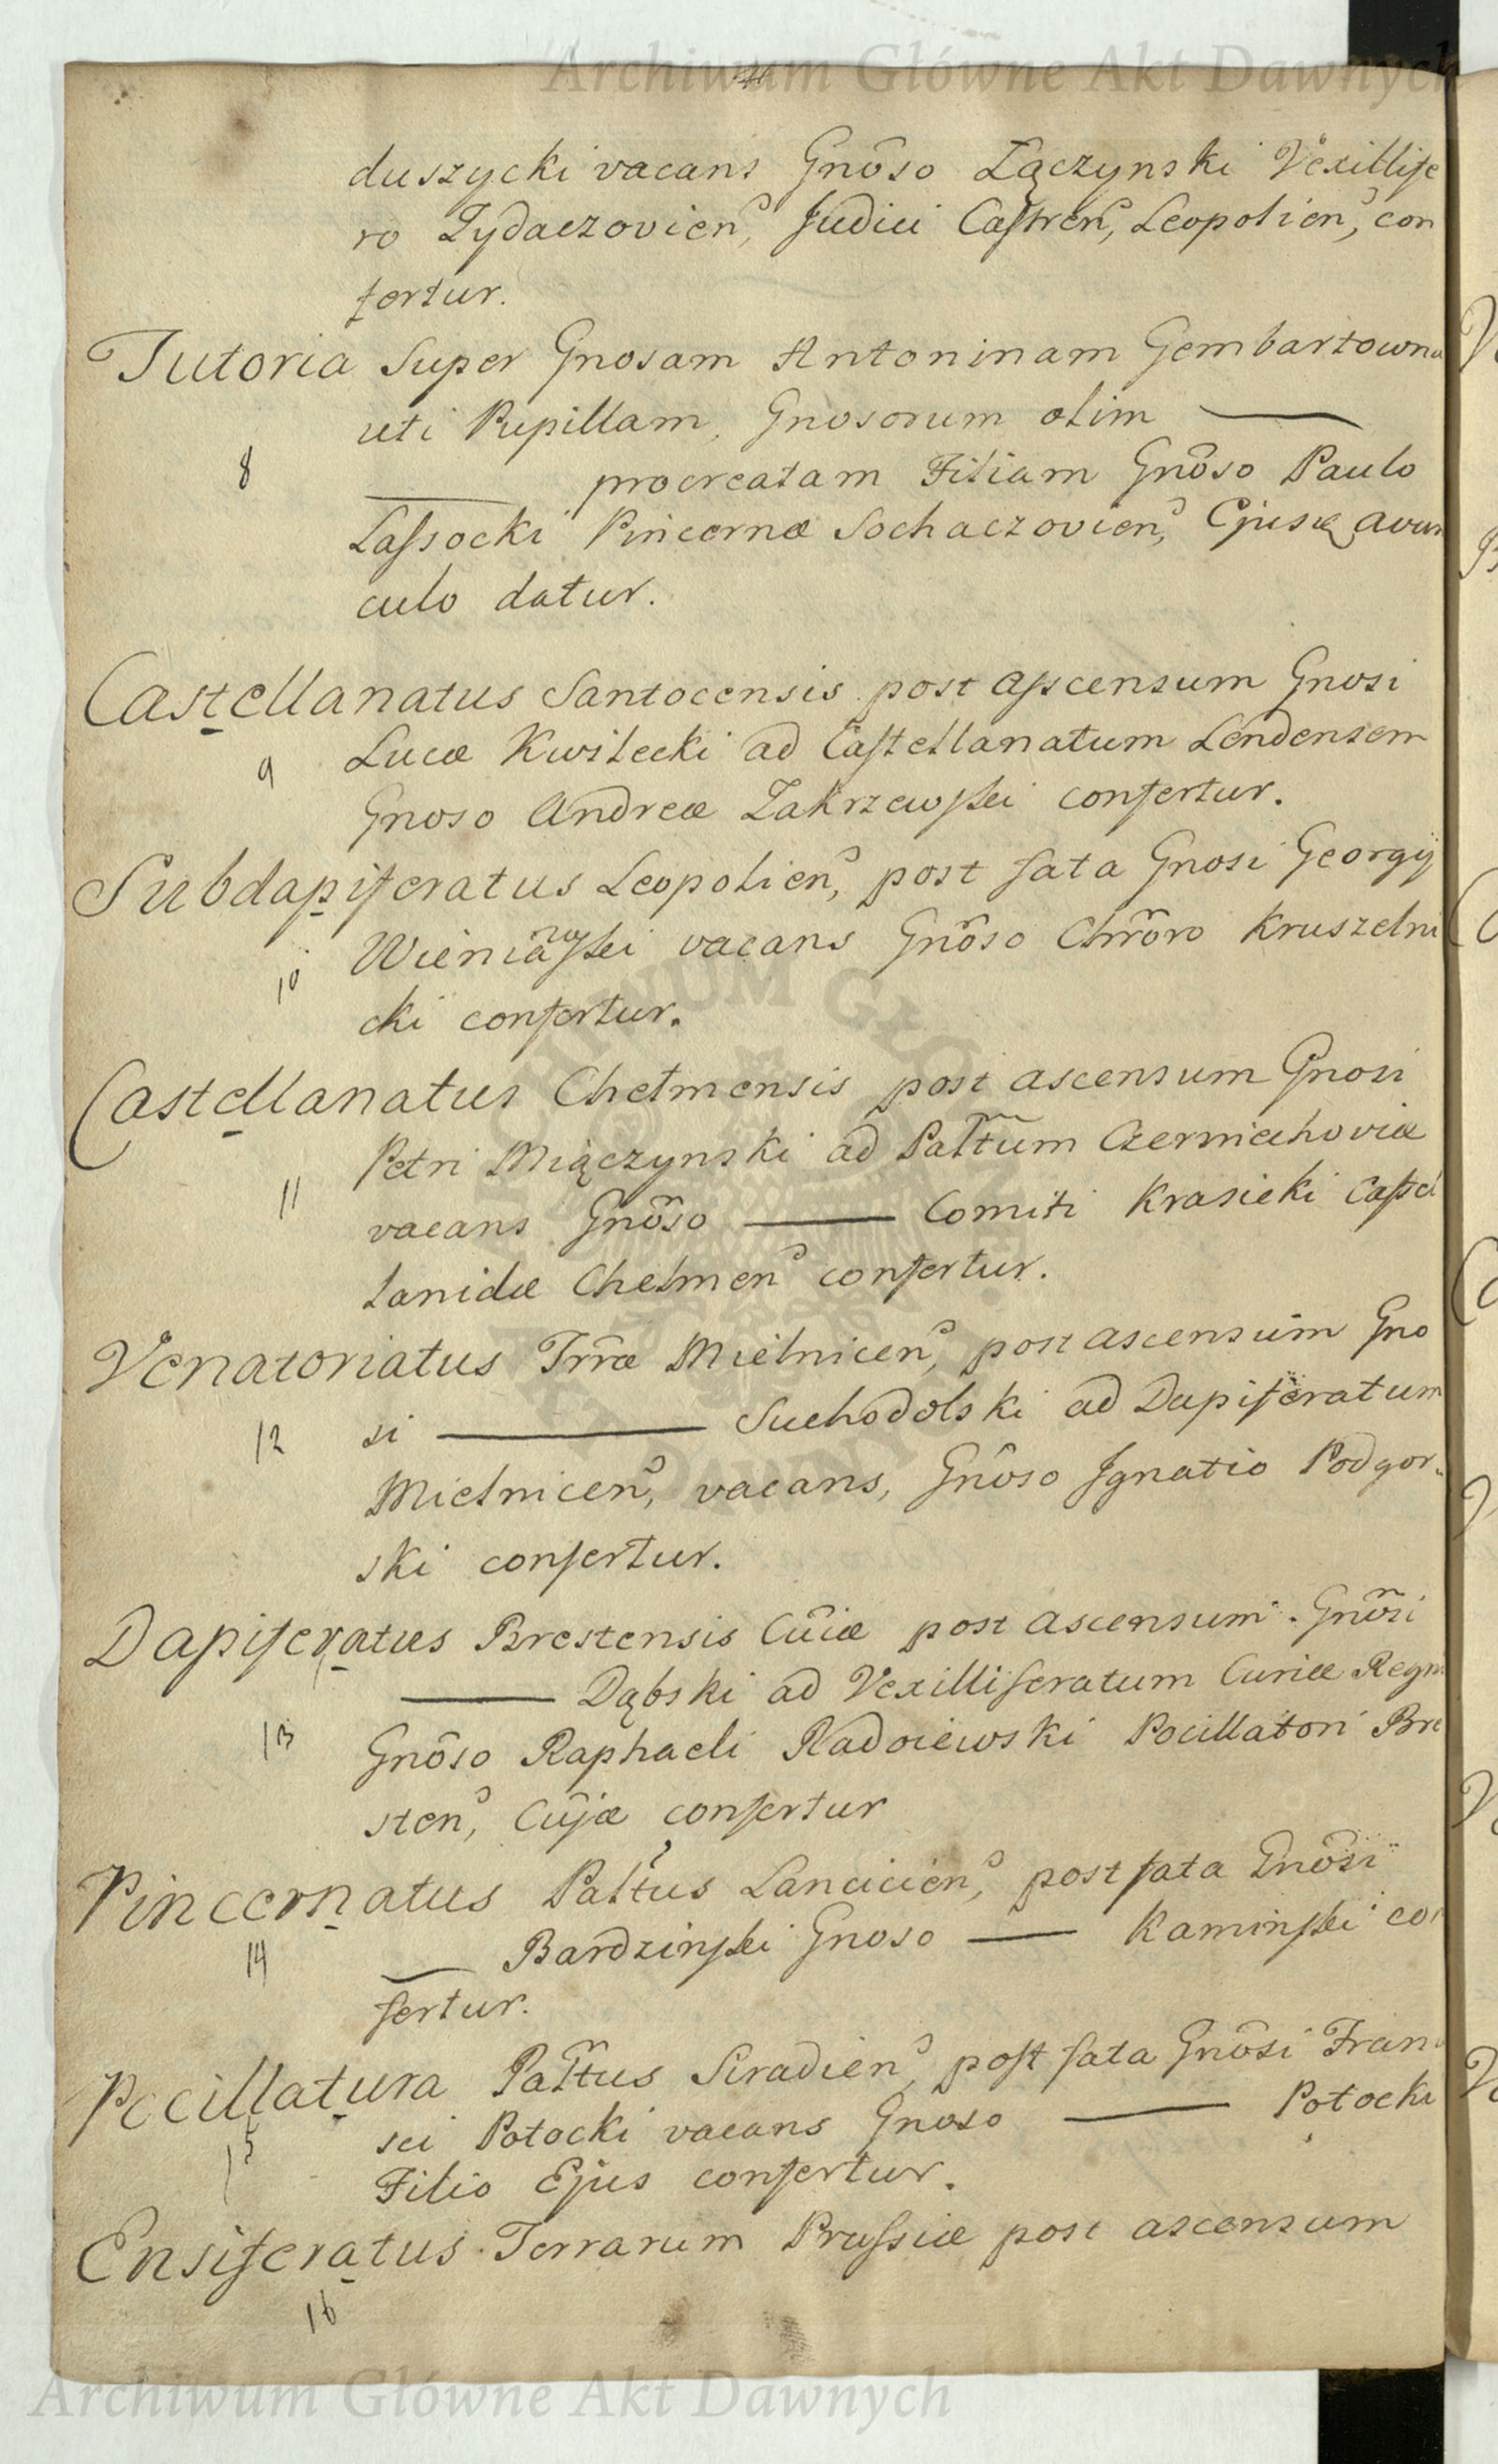 Archiwum Główne Akt Dawnych
duszycki vacans Gnôso Łączynski Vexillife
ro Zydaczovien, Judici Castren, Leopolien, con
fertur.
Tutoria Super Gnosam Antoninam Gembartowna
uti Pupillam, Gnosorum olim ——
8
—— procreatam Filiam Gnôso Paulo
Lassocki Pincernæ Sochaczovien, Ejusq avun
culo datur.
Castellanatus Santocensis post asscensum Gnosi
9 Lucæ Kwilecki ad Castellanatum Lendensem
Gnoso Andreæ Zakrzewski confertur.
Subdapiferatus Leopolien, post fata Gnosi Georgij
10 Wieniawski vacans Gnôso Chrôro Kruszelni
cki confertur.
Castellanatus Chelmensis post ascensum Gnosi
Petri Miączynski ad Palt̃um Czerniechoviæ
11 vacans Gnôso —— Comiti Krasicki Castel
lanidæ Chelmen confertur.
Venatoriatus Trr̃æ Mielnicen, post ascensum Gno
12 si —— Suchodolski ad Dapiferatum
Mielnicen, vacans, Gnôso Ignatio Podgor
ski confertur.
Dapiferatus Brestensis Cûiæ post ascensum Gnôsi
—— Dąbski ad Vexilliferatum Curiæ Regni
13 Gnôso Raphaeli Radoiewski Pocillatori Bre
sten, Cûjæ confertur
Pincernatus Palt̃us Lancicien, post fata Gnôsi
14 —— Bardzinski Gnoso —— Kaminski con
fertur.
Pocillatura Palt̃us Siradien, post fata Gnôsi Fran
15 sci Potocki vacans Gnoso —— Potocki
Filio Ejus confertur.
Ensiferatus Terrarum Prussiæ post ascensum
16
Archiwum Główne Akt Dawnych